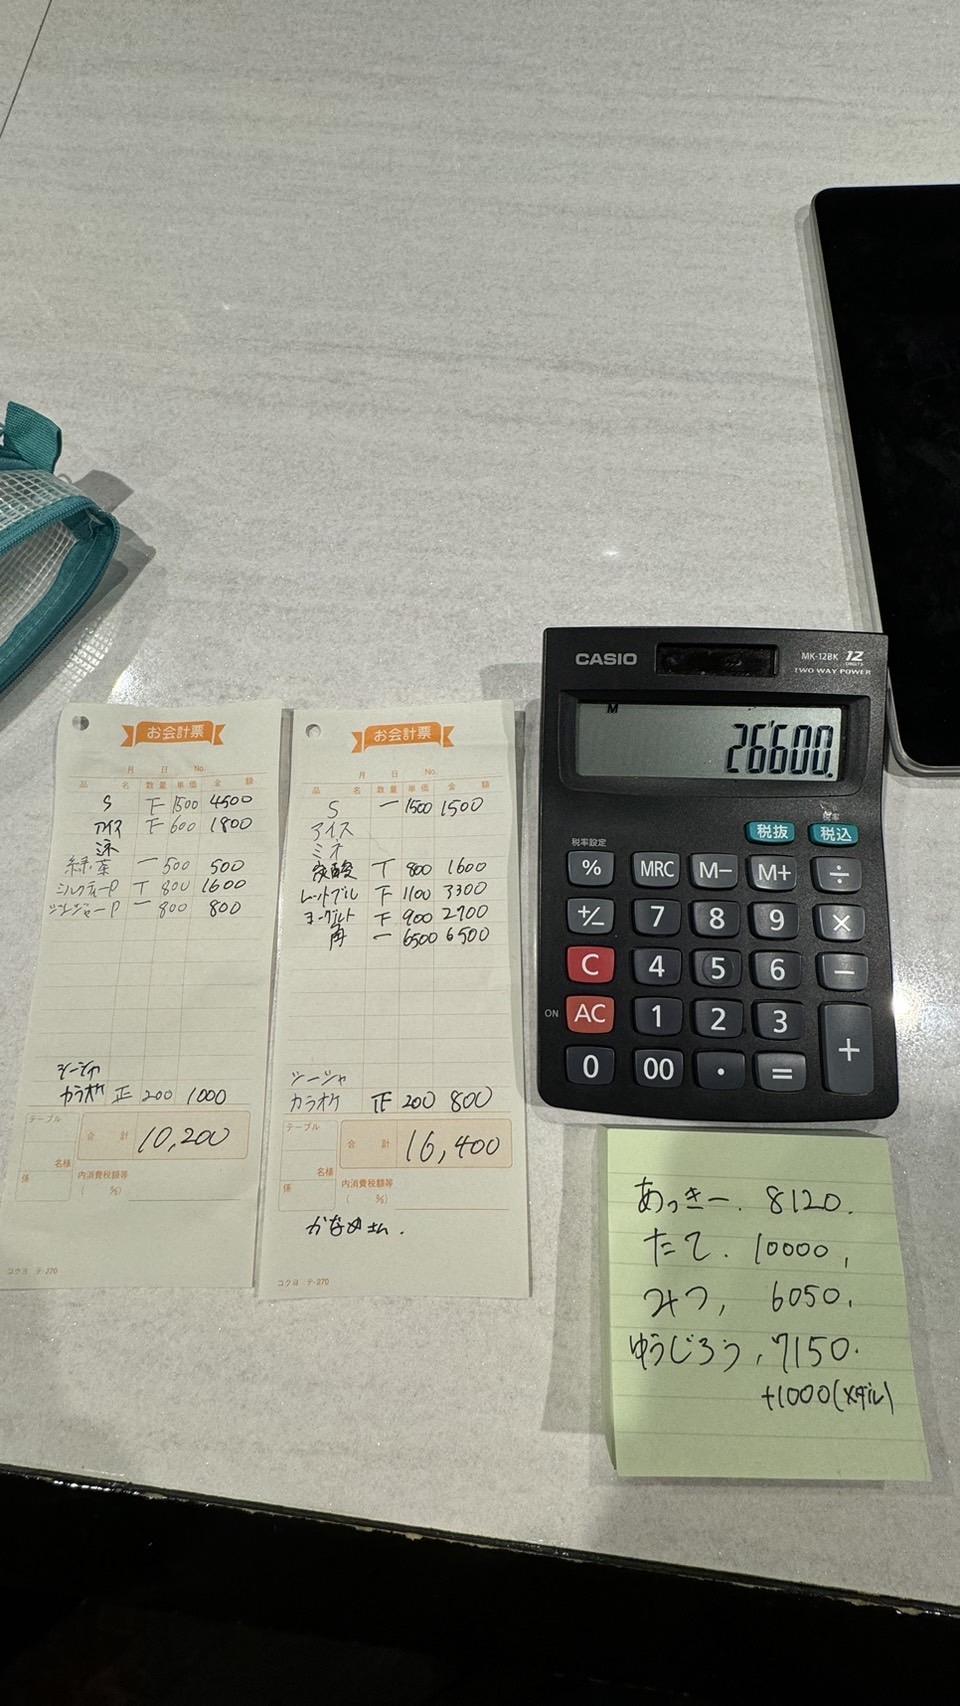 お会計票
月 日 No.
品 名 数量 単価 金 額
S 下 1500 4500
アイス 下 600 1800
緑茶 一 500 500
ミルクティーP T 800 1600
ジンジャーP 一 800 800
シーシャ
カラオケ 正 200 1000
テーブル
合 計 10,200
名様
係
内消費税額等
( %)
コクヨ テ-270
お会計票
月 日 No.
品 名 数量 単価 金 額
S 一 1500 1500
アイス
ミネ
炭酸 T 800 1600
レッドブル 下 1100 3300
ヨーグルト 下 900 2700
角 一 6500 6500
シーシャ
カラオケ 正 200 800
テーブル
合 計 16,400
名様
係
内消費税額等
( %)
かなめさん.
コクヨ テ-270
CASIO
MK-12BK 12 DIGITS
TWO WAY POWER
M
26'600.
税率
税抜 税込
税率設定
% MRC M− M+ ÷
+/− 7 8 9 ×
C 4 5 6 −
ON AC 1 2 3 +
0 00 · =
あっきー. 8120.
たて. 10000,
みつ, 6050.
ゆうじろう, 7150.
+1000(メダル)